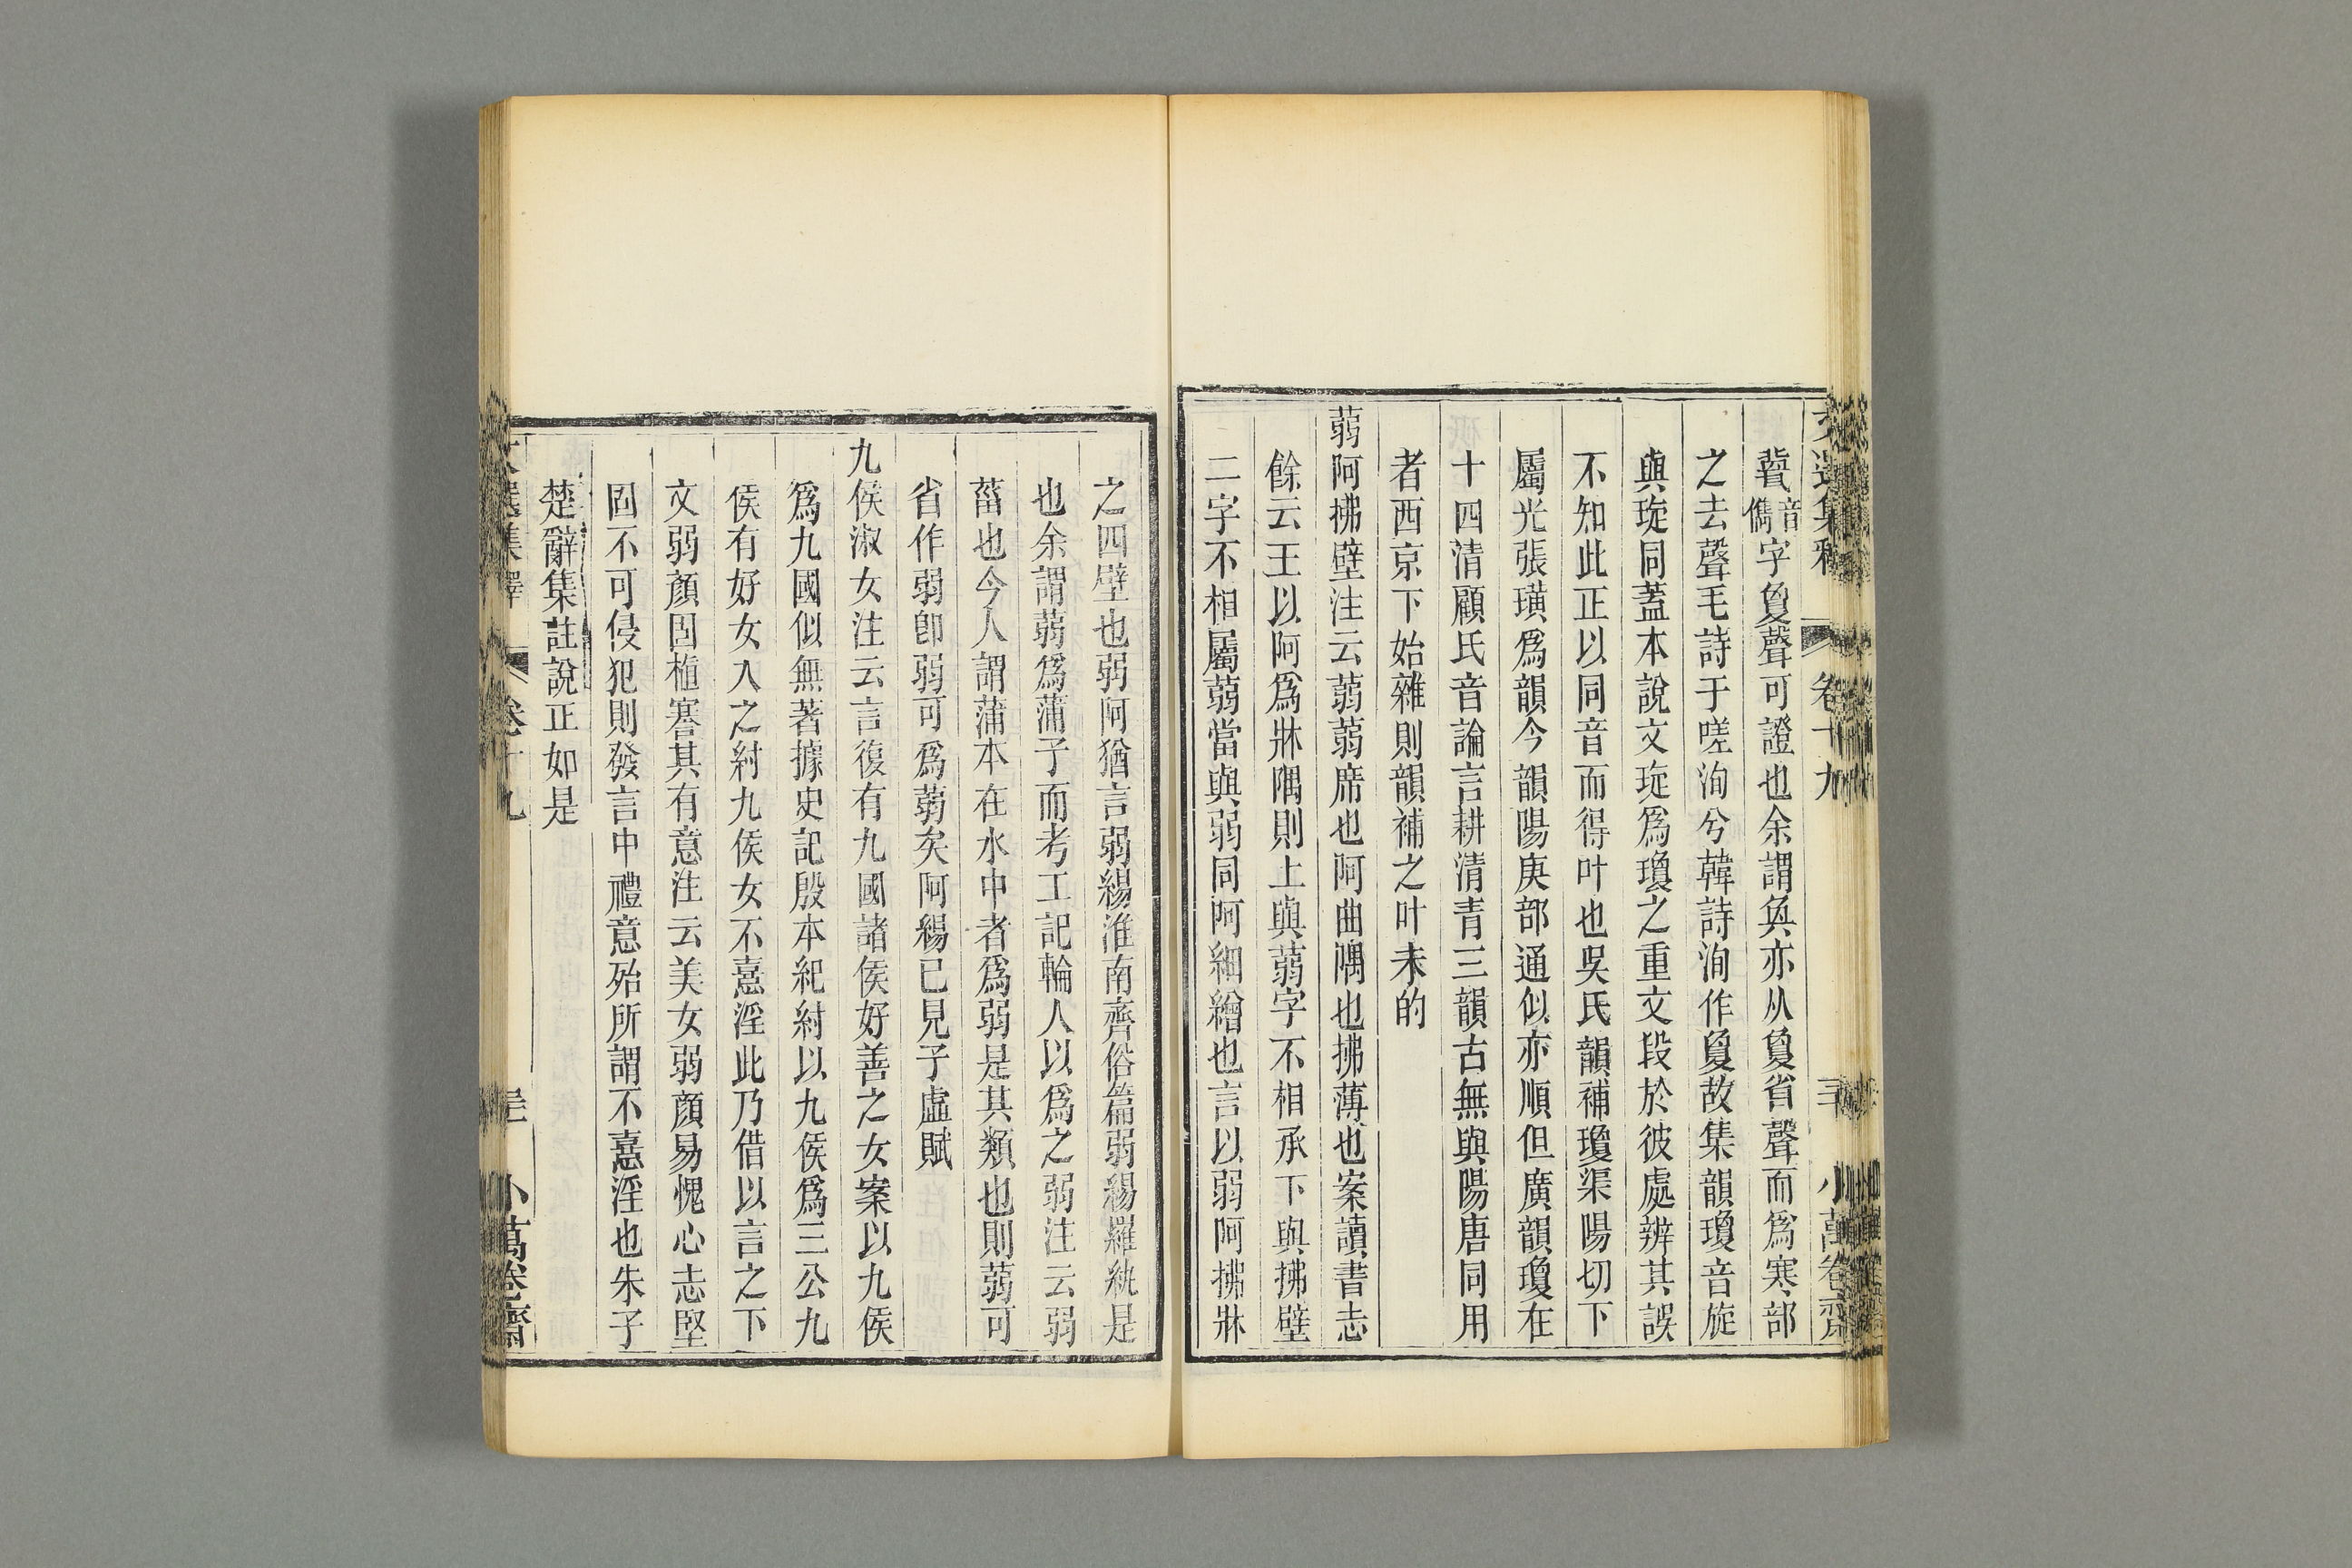 文選集釋 卷十九 三十 小萬卷齋
𡕢音儁字敻聲可證也余謂奐亦从敻省聲而爲寒部
之去聲毛詩于嗟洵兮韓詩洵作敻故集韻瓊音旋
與琁同蓋本說文琁爲瓊之重文段於彼處辨其誤
不知此正以同音而得叶也吳氏韻補瓊渠陽切下
屬光張璜爲韻今韻陽庚部通似亦順但廣韻瓊在
十四清顧氏音論言耕清青三韻古無與陽唐同用
者西京下始雜則韻補之叶未的
蒻阿拂壁注云蒻蒻席也阿曲隅也拂薄也案讀書志
餘云王以阿爲牀隅則上與蒻字不相承下與拂壁
二字不相屬蒻當與弱同阿細繒也言以弱阿拂牀
之四壁也弱阿猶言弱緆淮南齊俗篇弱緆羅紈是
也余謂蒻爲蒲子而考工記輪人以爲之弱注云弱
菑也今人謂蒲本在水中者爲弱是其類也則蒻可
省作弱卽弱可爲蒻矣阿緆已見子虛賦
九侯淑女注云言復有九國諸侯好善之女案以九侯
爲九國似無著據史記殷本紀紂以九侯爲三公九
侯有好女入之紂九侯女不憙淫此乃借以言之下
文弱顏固植謇其有意注云美女弱顏易愧心志堅
固不可侵犯則發言中禮意殆所謂不憙淫也朱子
楚辭集註說正如是
文選集釋 卷十九 小萬卷齋